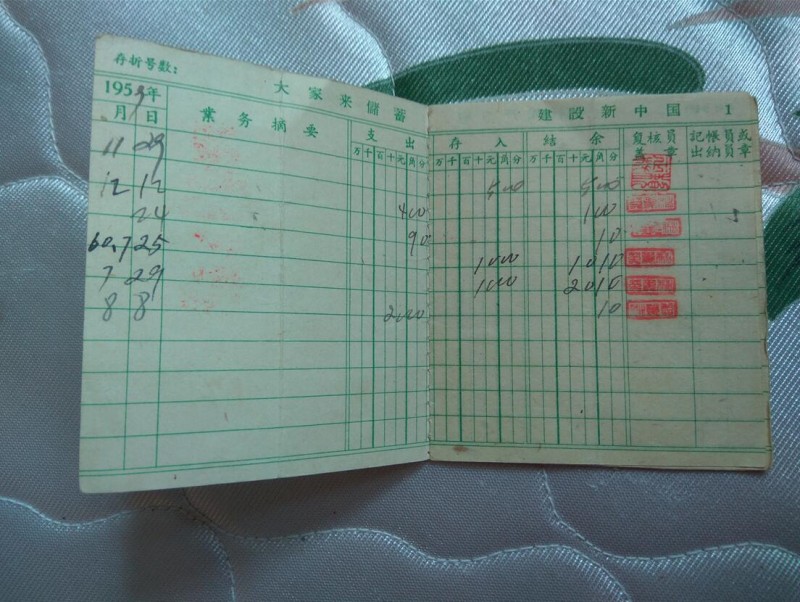 存折号数:
1959年 大家来儲蓄 建設新中国 1
月 日 業务摘要 支出 存入 結余 复核員蓋章 記帳員或出納員章
万千百十元角分 万千百十元角分 万千百十元角分
11 29 500 500
12 12
24 400 100
60.7 25 90 10
1000 1010
7 29 1000 2010
8 8 2000 10